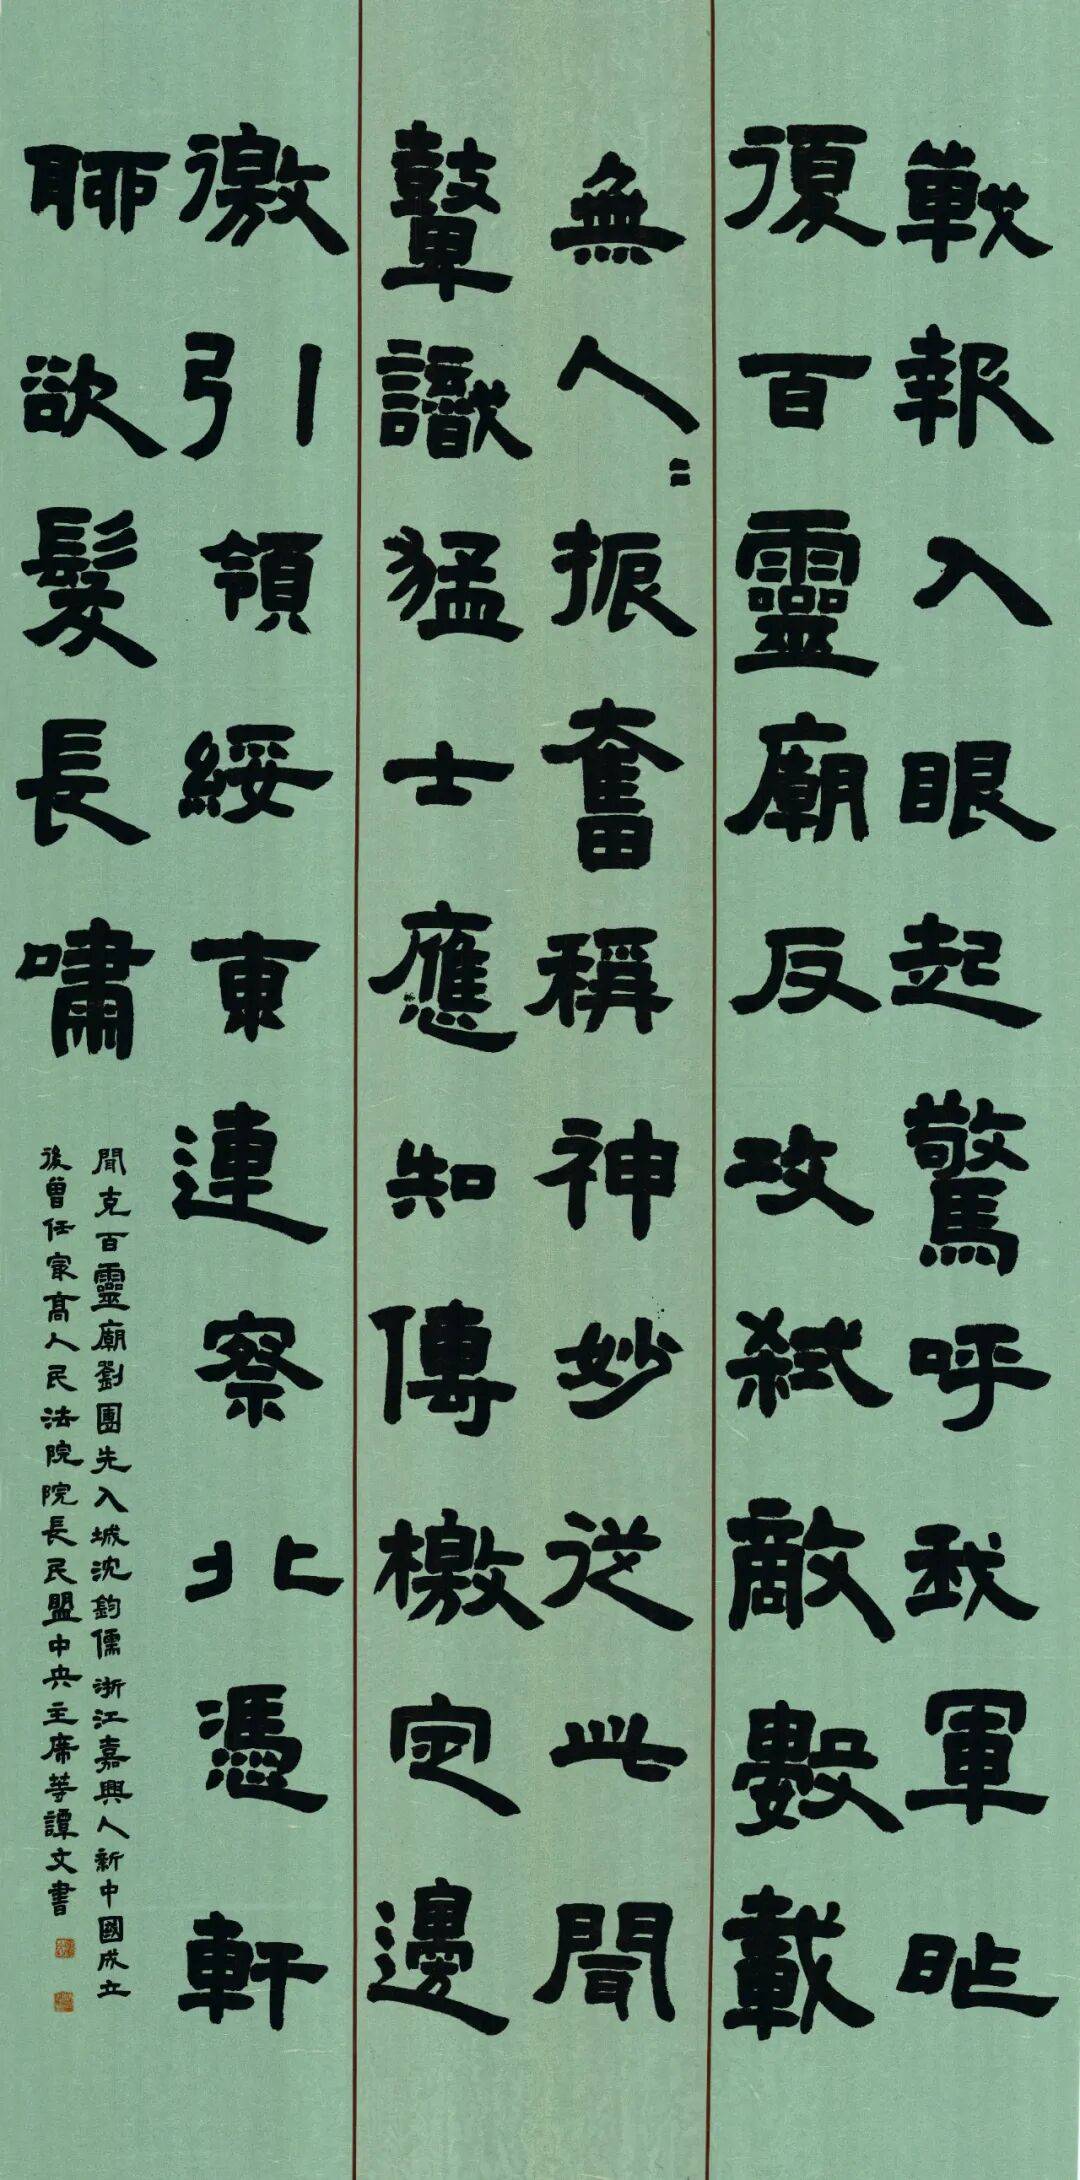 戰報入眼起驚呼我軍昨
復百靈廟反攻弑敵數載
無人〻振奮稱神妙從此聞
鼙識猛士應知傳檄定邊
徼引領綏東連察北憑軒
聊欲髮長嘯
聞克百靈廟劉團先入城沈鈞儒浙江嘉興人新中國成立
後曾任最高人民法院院長民盟中央主席等譚文書